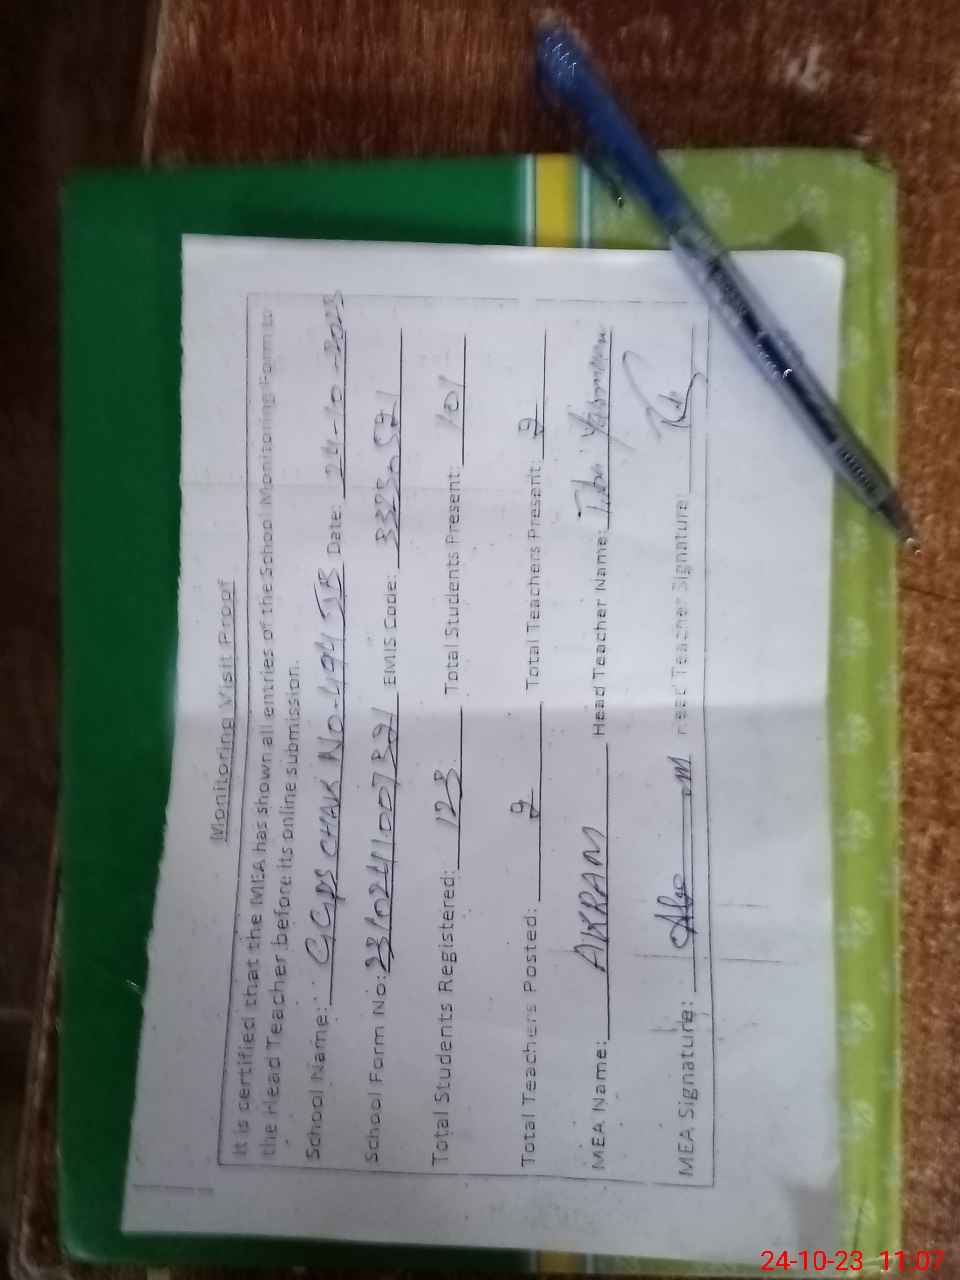 Monitoring Visit Proof
It is certified that the MEA has shown all entries of the School Monitoring Form to
the Head Teacher before its online submission.
School Name: GGPS CHAK NO-494 JB Date: 24-10-2023
School Form No: EMIS Code:
Total Students Registered: 123 Total Students Present: 101
Total Teachers Posted: 2 Total Teachers Present: 2
MEA Name: AKRAM Head Teacher Name:
MEA Signature: Head Teacher Signature:
24-10-23 11:07